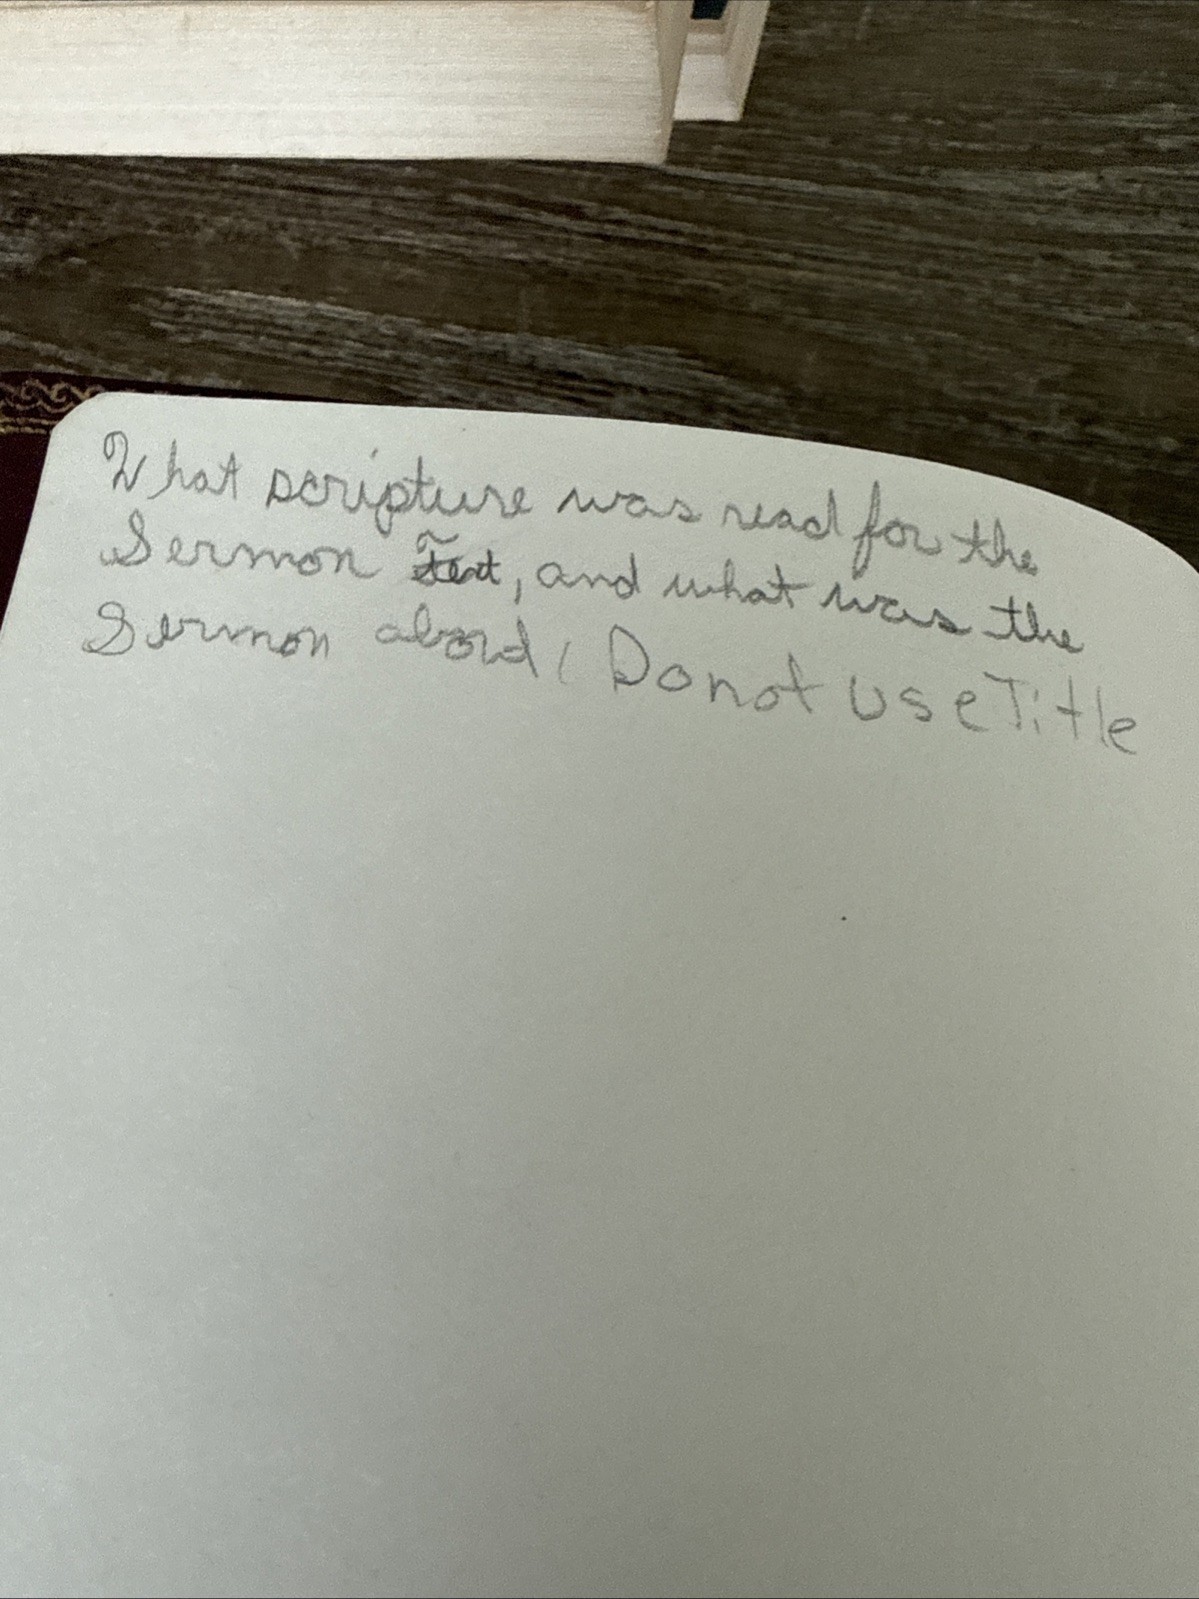 What scripture was read for the
Sermon Text, and what was the
Sermon ( Do not use Title